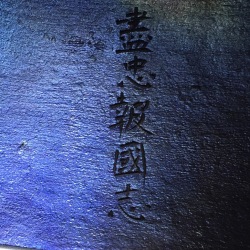 盡忠報國志